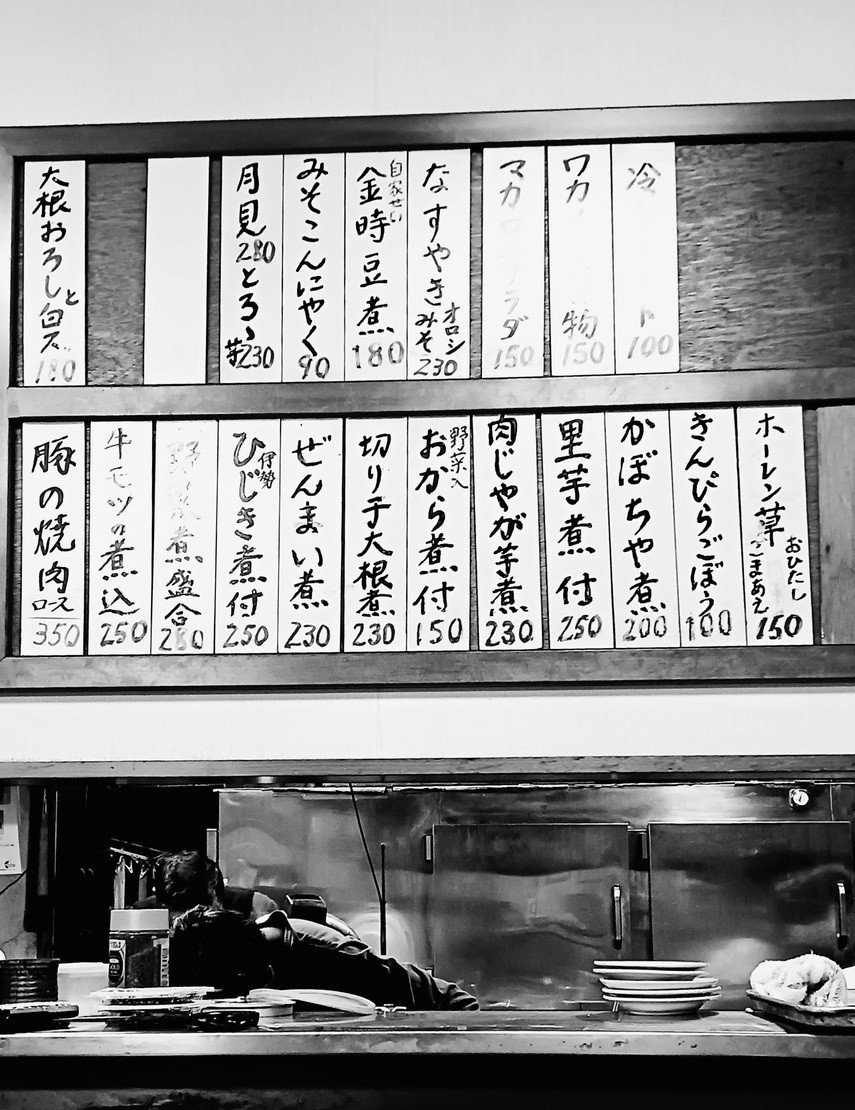 冷 ト
100
ワカ 物
150
マカロニサラダ
150
なすやき
オロシ
みそ
230
自家せい
金時豆煮
180
みそこんにゃく
90
月見
280
とろゝ
芋230
大根おろしと白ス
180
ホーレン草
おひたし
ごまあえ
150
きんぴらごぼう
100
かぼちゃ煮
200
里芋煮付
250
肉じゃが芋煮
230
野菜入
おから煮付
150
切り干大根煮
230
ぜんまい煮
230
伊勢
ひじき煮付
250
野菜煮盛合
280
牛モツの煮込
250
豚の焼肉
ロース
350